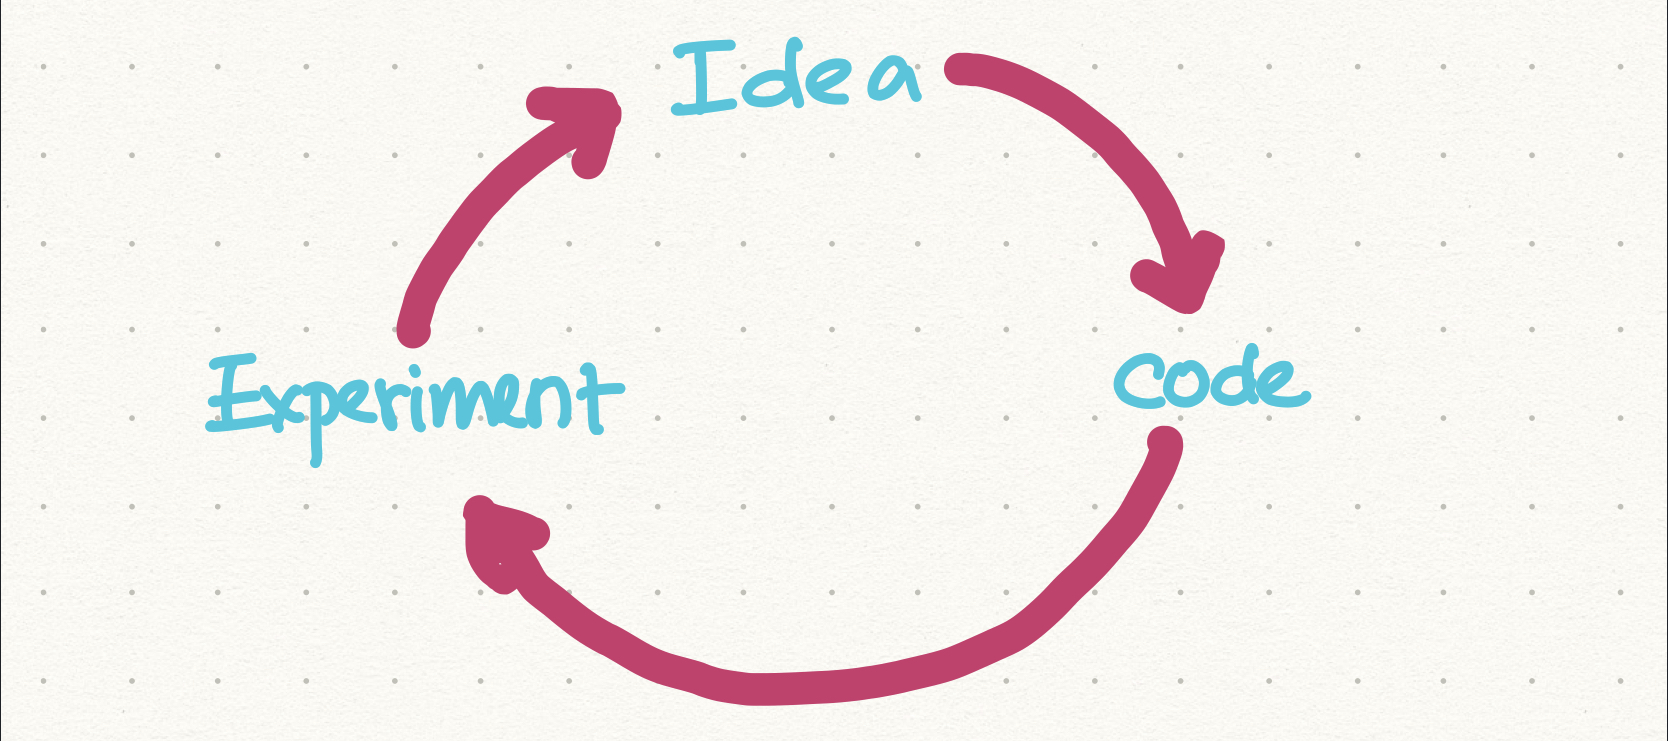 Idea
code
Experiment